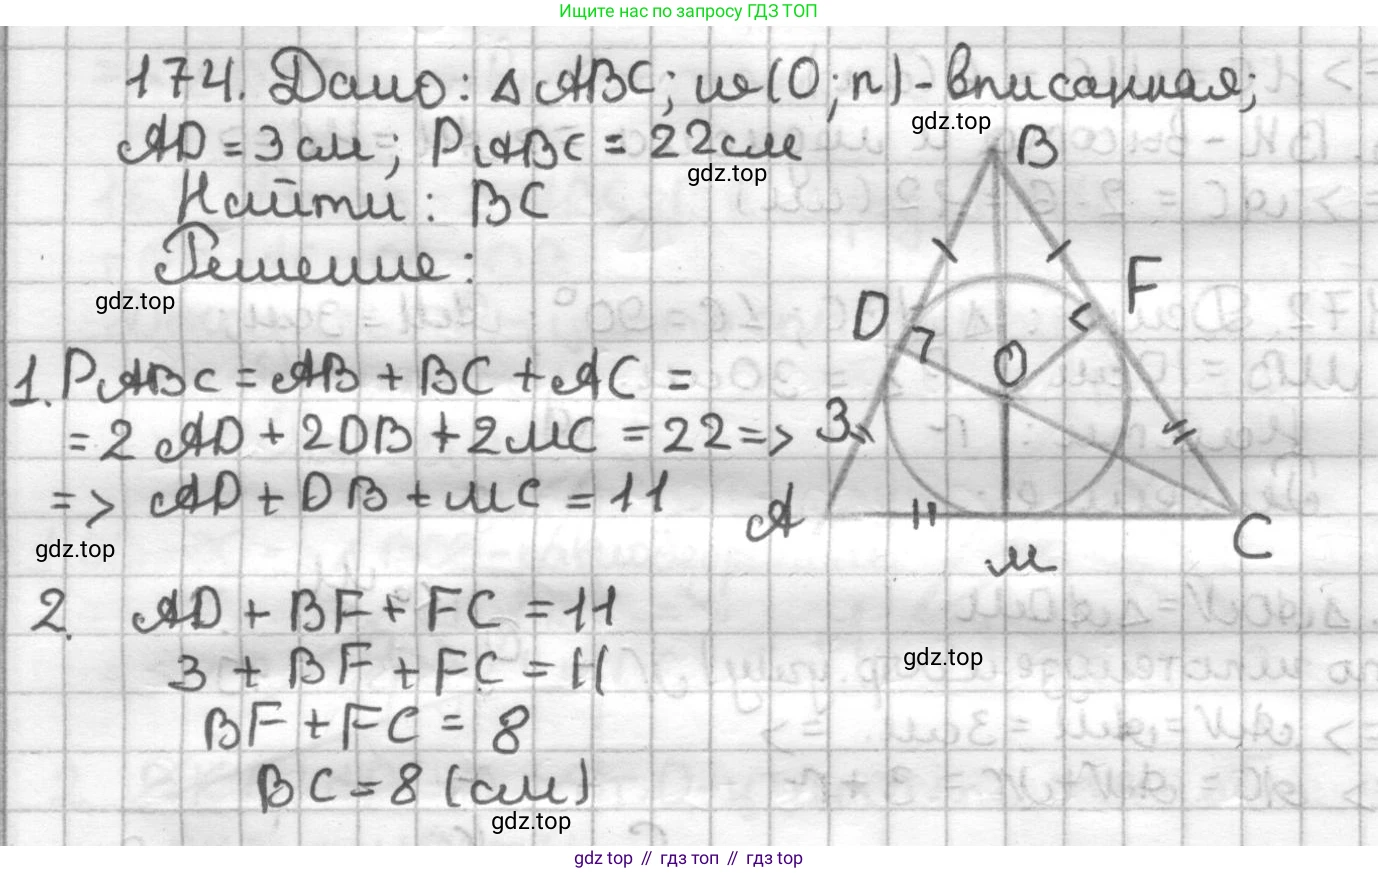 Ищите нас по запросу ГДЗ ТОП
174. Дано: △ ABC; ω(O; r) - вписанная;
gdz.top
AD = 3 см; P ABC = 22 см
gdz.top
Найти: BC
Решение:
gdz.top
B
D
F
O
3
A
C
M
1. P ABC = AB + BC + AC =
= 2 AD + 2DB + 2MC = 22 =>
=> AD + DB + MC = 11
gdz.top
2. AD + BF + FC = 11
3 + BF + FC = 11
gdz.top
BF + FC = 8
BC = 8 (см)
gdz.top
gdz top // гдз топ // gdz top